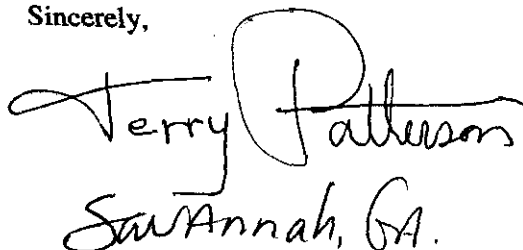 Sincerely,
Terry Patterson
Savannah, GA.